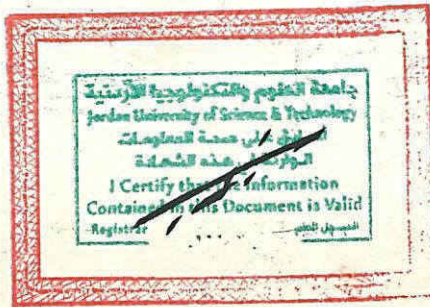 جامعة العلوم والتكنولوجيا الأردنية
Jordan University of Science & Technology
على صحة المعلومات
الواردة في هذه الشهادة
I Certify that the Information
Contained in this Document is Valid
Registrar المسجل العام